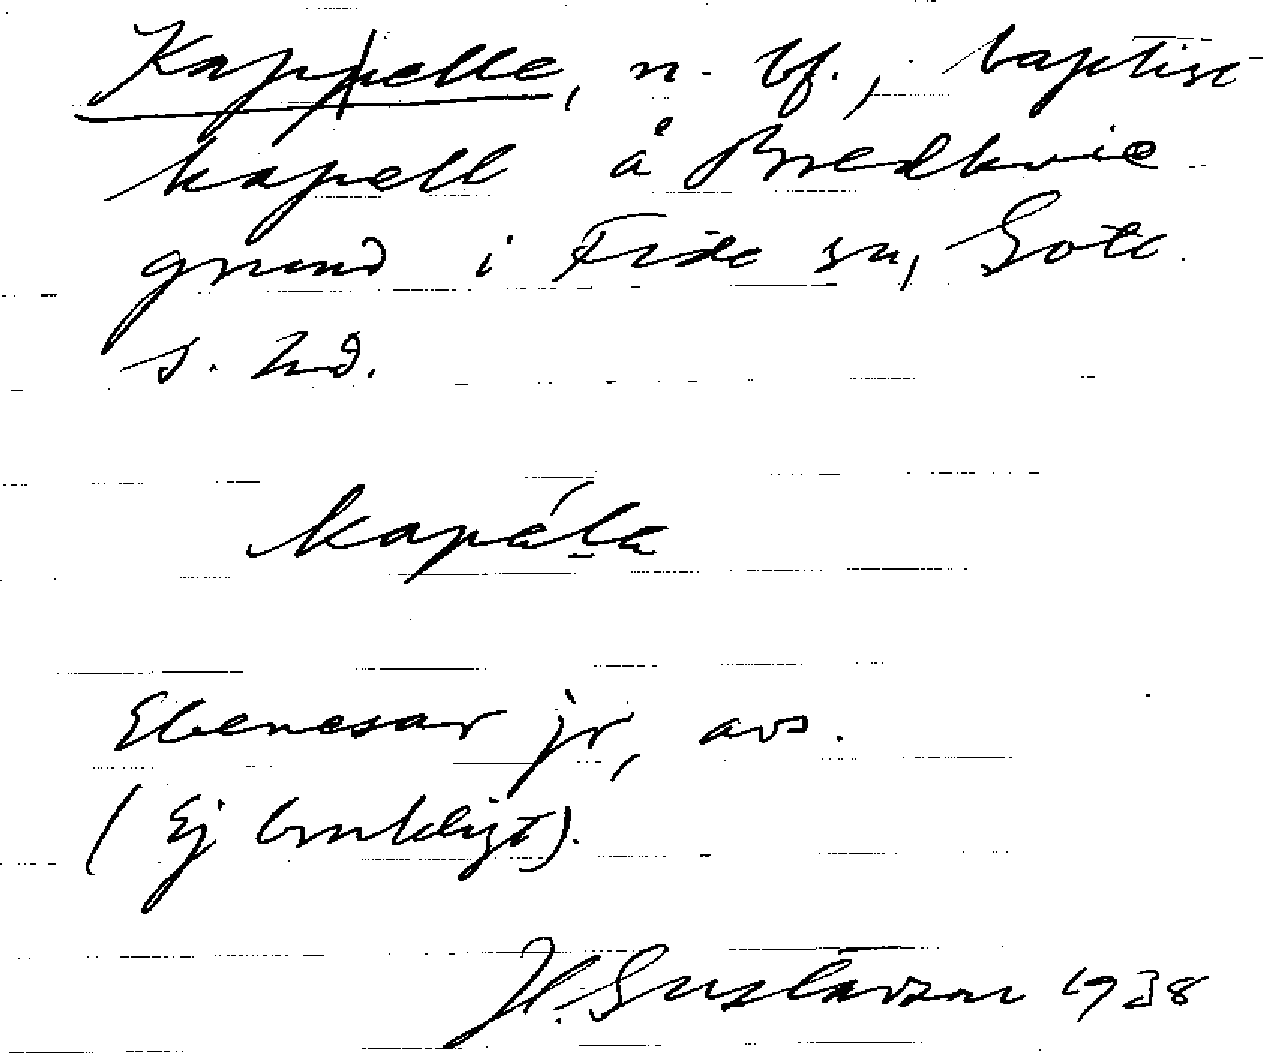 Kappelle, n. bf., baptist
kapell å Bredkvie
grund i Fide sn, Gotl.
s. hd.
kapäla
Ebenesar jr, avs.
(Ej brukligt).
H. Gustavson 1938